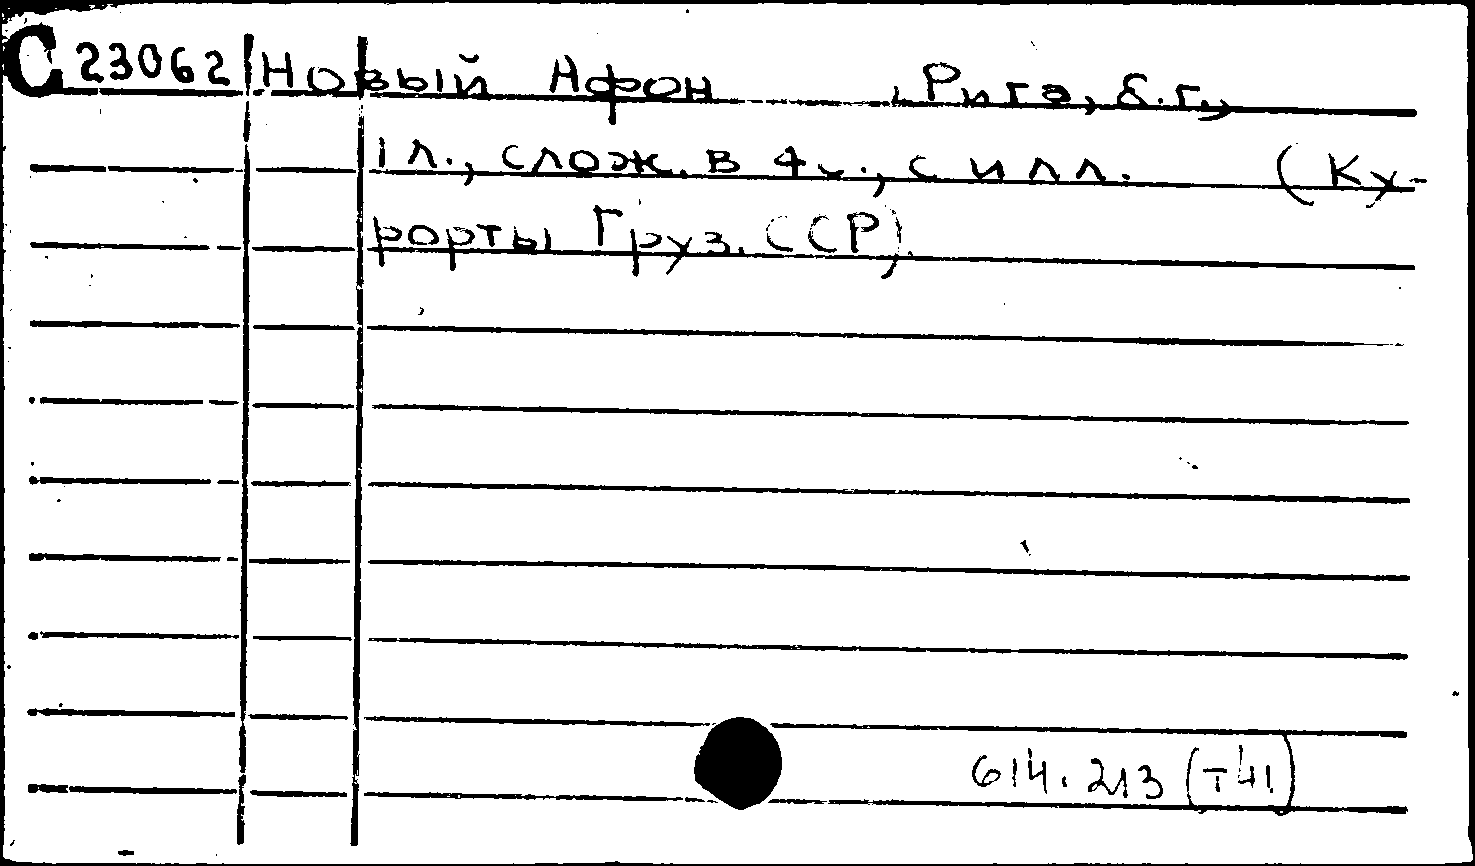 С 23062 Новый Афон , Рига, б.г.,
1 л., слож. в 4 ч., с илл. (Ку-
рорты Груз. ССР).
614.213 (Т41)